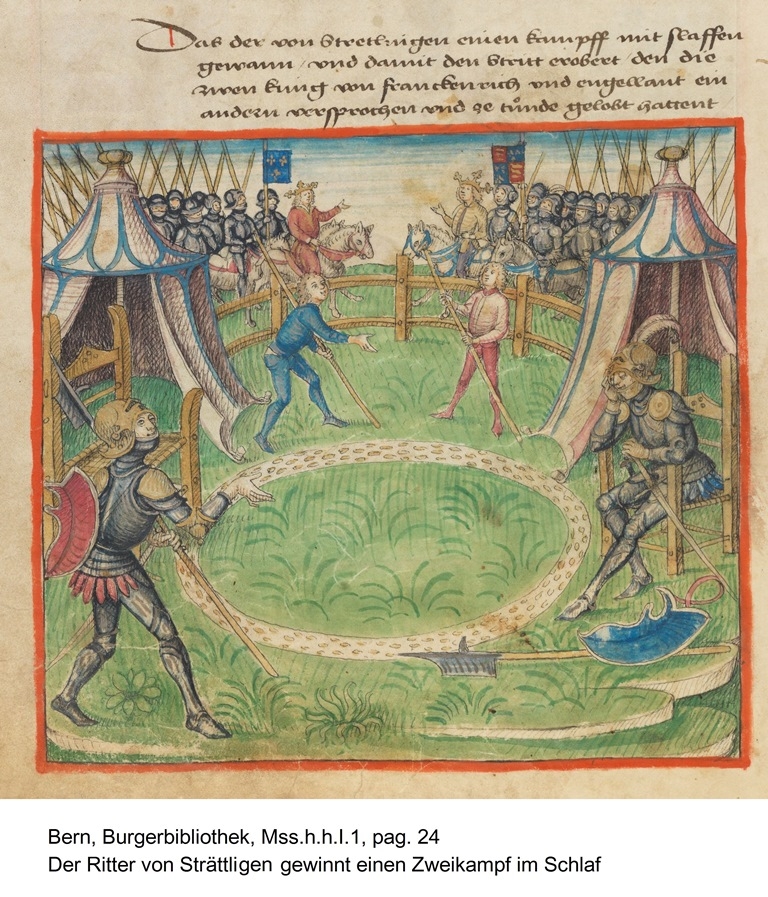 Das der von Stretlingen einen kampff mit slaffen
gewann / vnd damit den Stritt erobert / den die
zwen kúng von franckenrich vnd engellant ein
andern versprochen vnd ze tůnde gelobt hattent
Bern, Burgerbibliothek, Mss.h.h.I.1, pag. 24
Der Ritter von Strättligen gewinnt einen Zweikampf im Schlaf